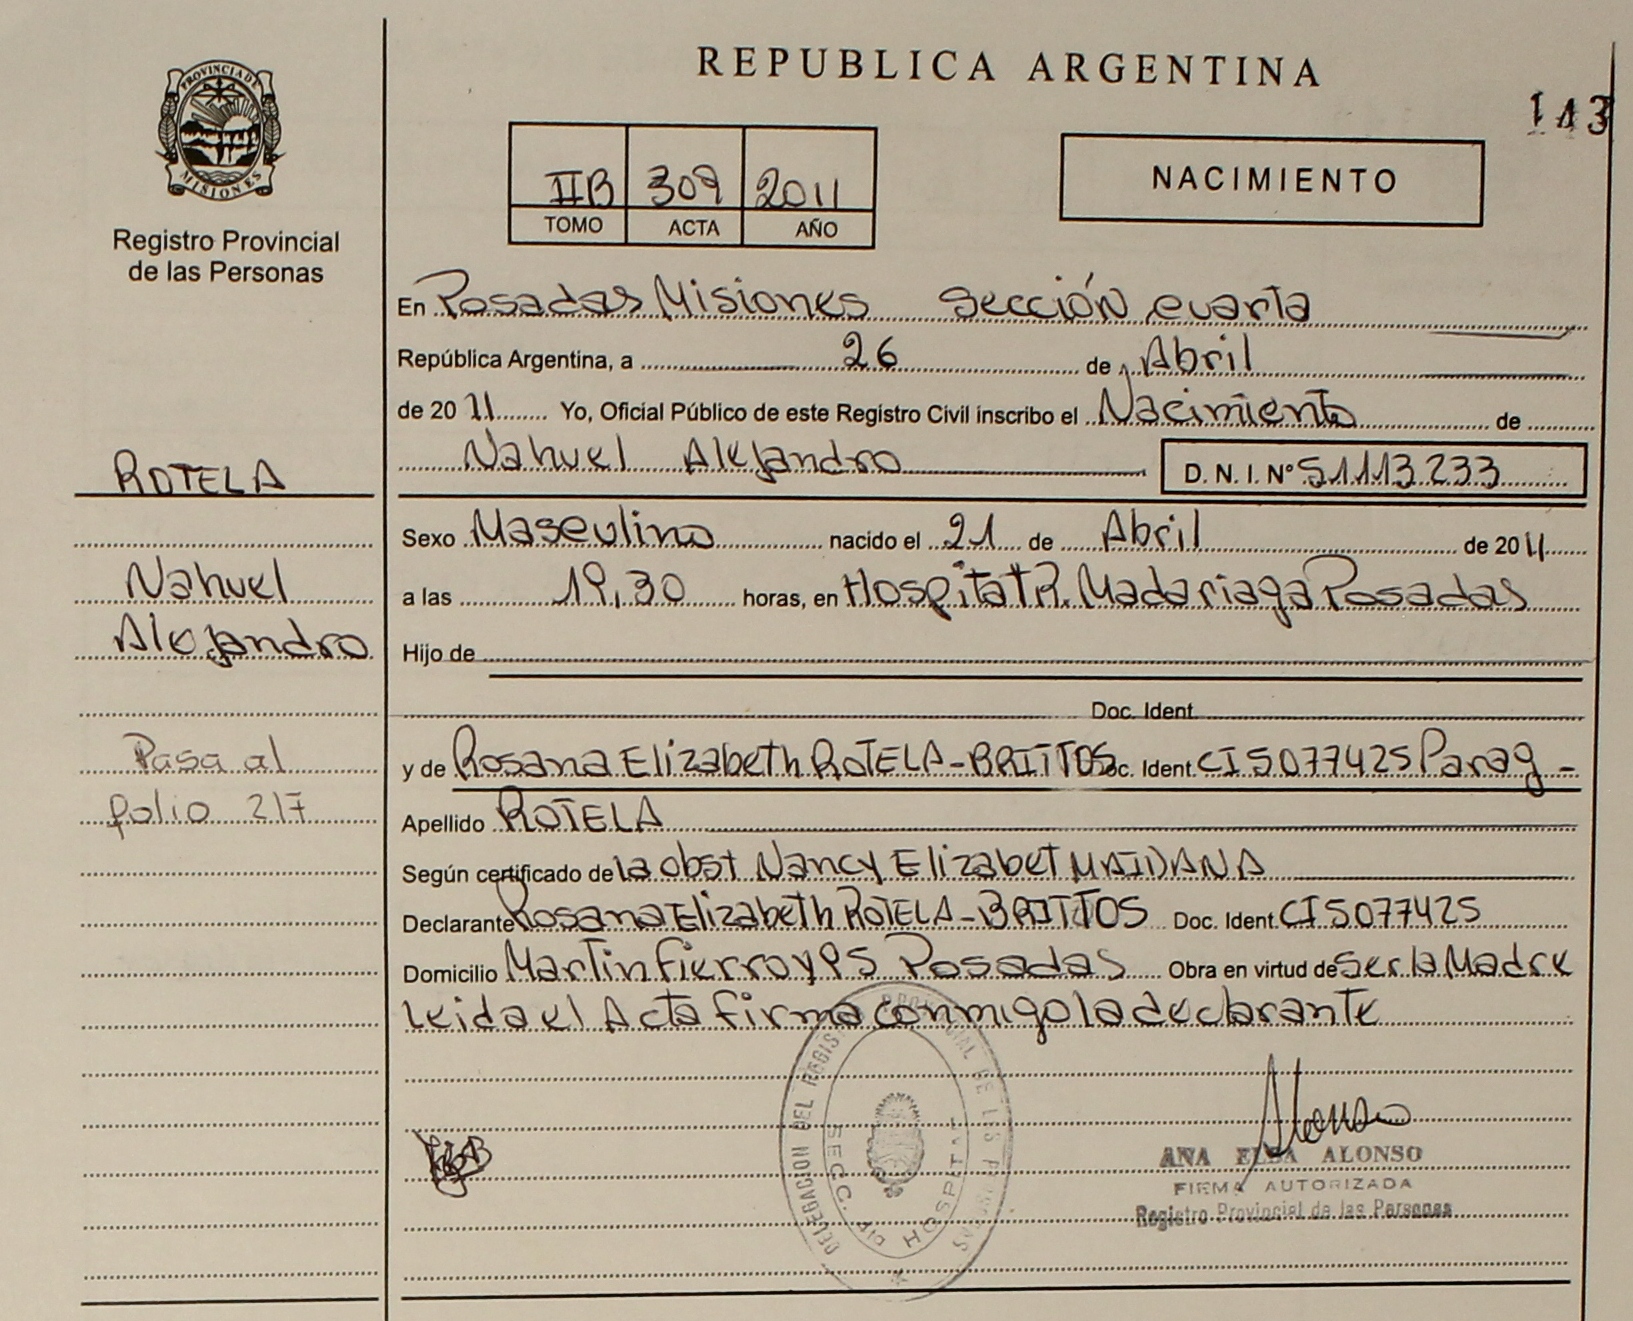 REPUBLICA ARGENTINA
143
PROVINCIA DE
MISIONES
Registro Provincial
de las Personas
IIB 309 2011
TOMO ACTA AÑO
NACIMIENTO
En Posadas Misiones Sección cuarta
República Argentina, a 26 de Abril
de 2011 Yo, Oficial Público de este Registro Civil inscribo el Nacimiento de
Nahuel Alejandro D. N. I. Nº 51113233
ROTELA
Sexo Masculino nacido el 21 de Abril de 2011
Nahuel
a las 19,30 horas, en Hospital R. Madariaga Posadas
Alejandro
Hijo de
Doc. Ident.
Pasa al
folio 217
y de Rosana Elizabeth ROTELA-BRITTOS Doc. Ident. CI 5077425 Parag -
Apellido ROTELA
Según certificado de la obst Nancy Elizabet MAIDANA
Declarante Rosana Elizabeth ROTELA-BRITTOS Doc. Ident. CI 5077425
Domicilio Martin Fierro y Posadas Obra en virtud de ser la Madre
leida el Acta firma conmigo la declarante
DELEGACION DEL REGISTRO PROVINCIAL DE LAS PERSONAS
SECC. 4ta HOSPITAL
Alonso
ANA ELBA ALONSO
FIRMA AUTORIZADA
Registro Provincial de las Personas